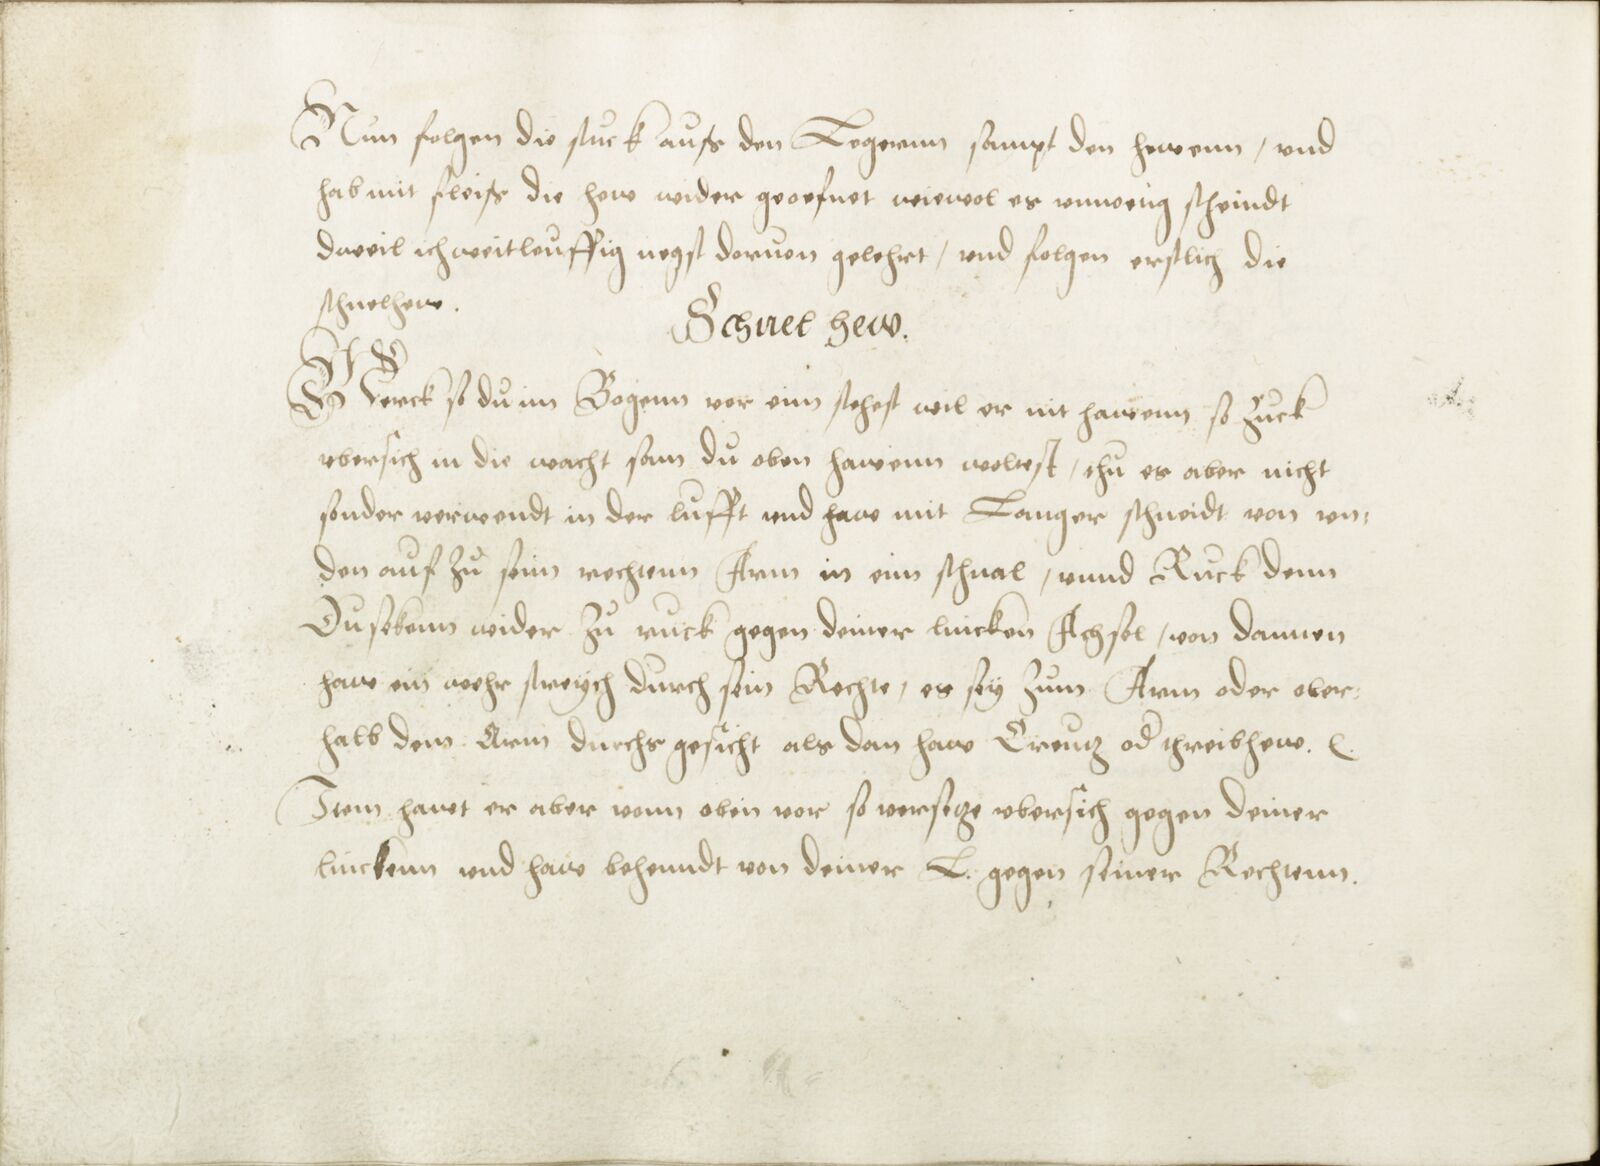 Nun folgen die stuck auss den Legernn sampt den hewenn / und
hab mit fleiss die hew wider geoefnet wiewol es unnoetig scheindt
dweil ich weitleuffig negst dervon gelehrt / und folgen erstlich die
schnelhew.
Schnel hew.
Merck so du im Bogenn vor eim stehest wil er nit hawenn so zuck
ubersich in die wacht sam du oben hawenn woltest / thu es aber nicht
sonder verwendt in der lufft und haw mit Langer schneidt von un=
den auf zu seim rechtenn Arm in eim schnal / unnd Ruck denn
Dusekenn wider zu ruck gegen deiner lincken Achsel / von dannen
haw ein wehr streych durch sein Rechte / es sey zum Arm oder ober=
halb dem Arm durchs gesicht als dan haw Creutz od threibhew.
Item hawt er aber vonn oben vor so versetze ubersich gegen deiner
linckenn und haw behenndt von deiner L. gegen seiner Rechtenn.